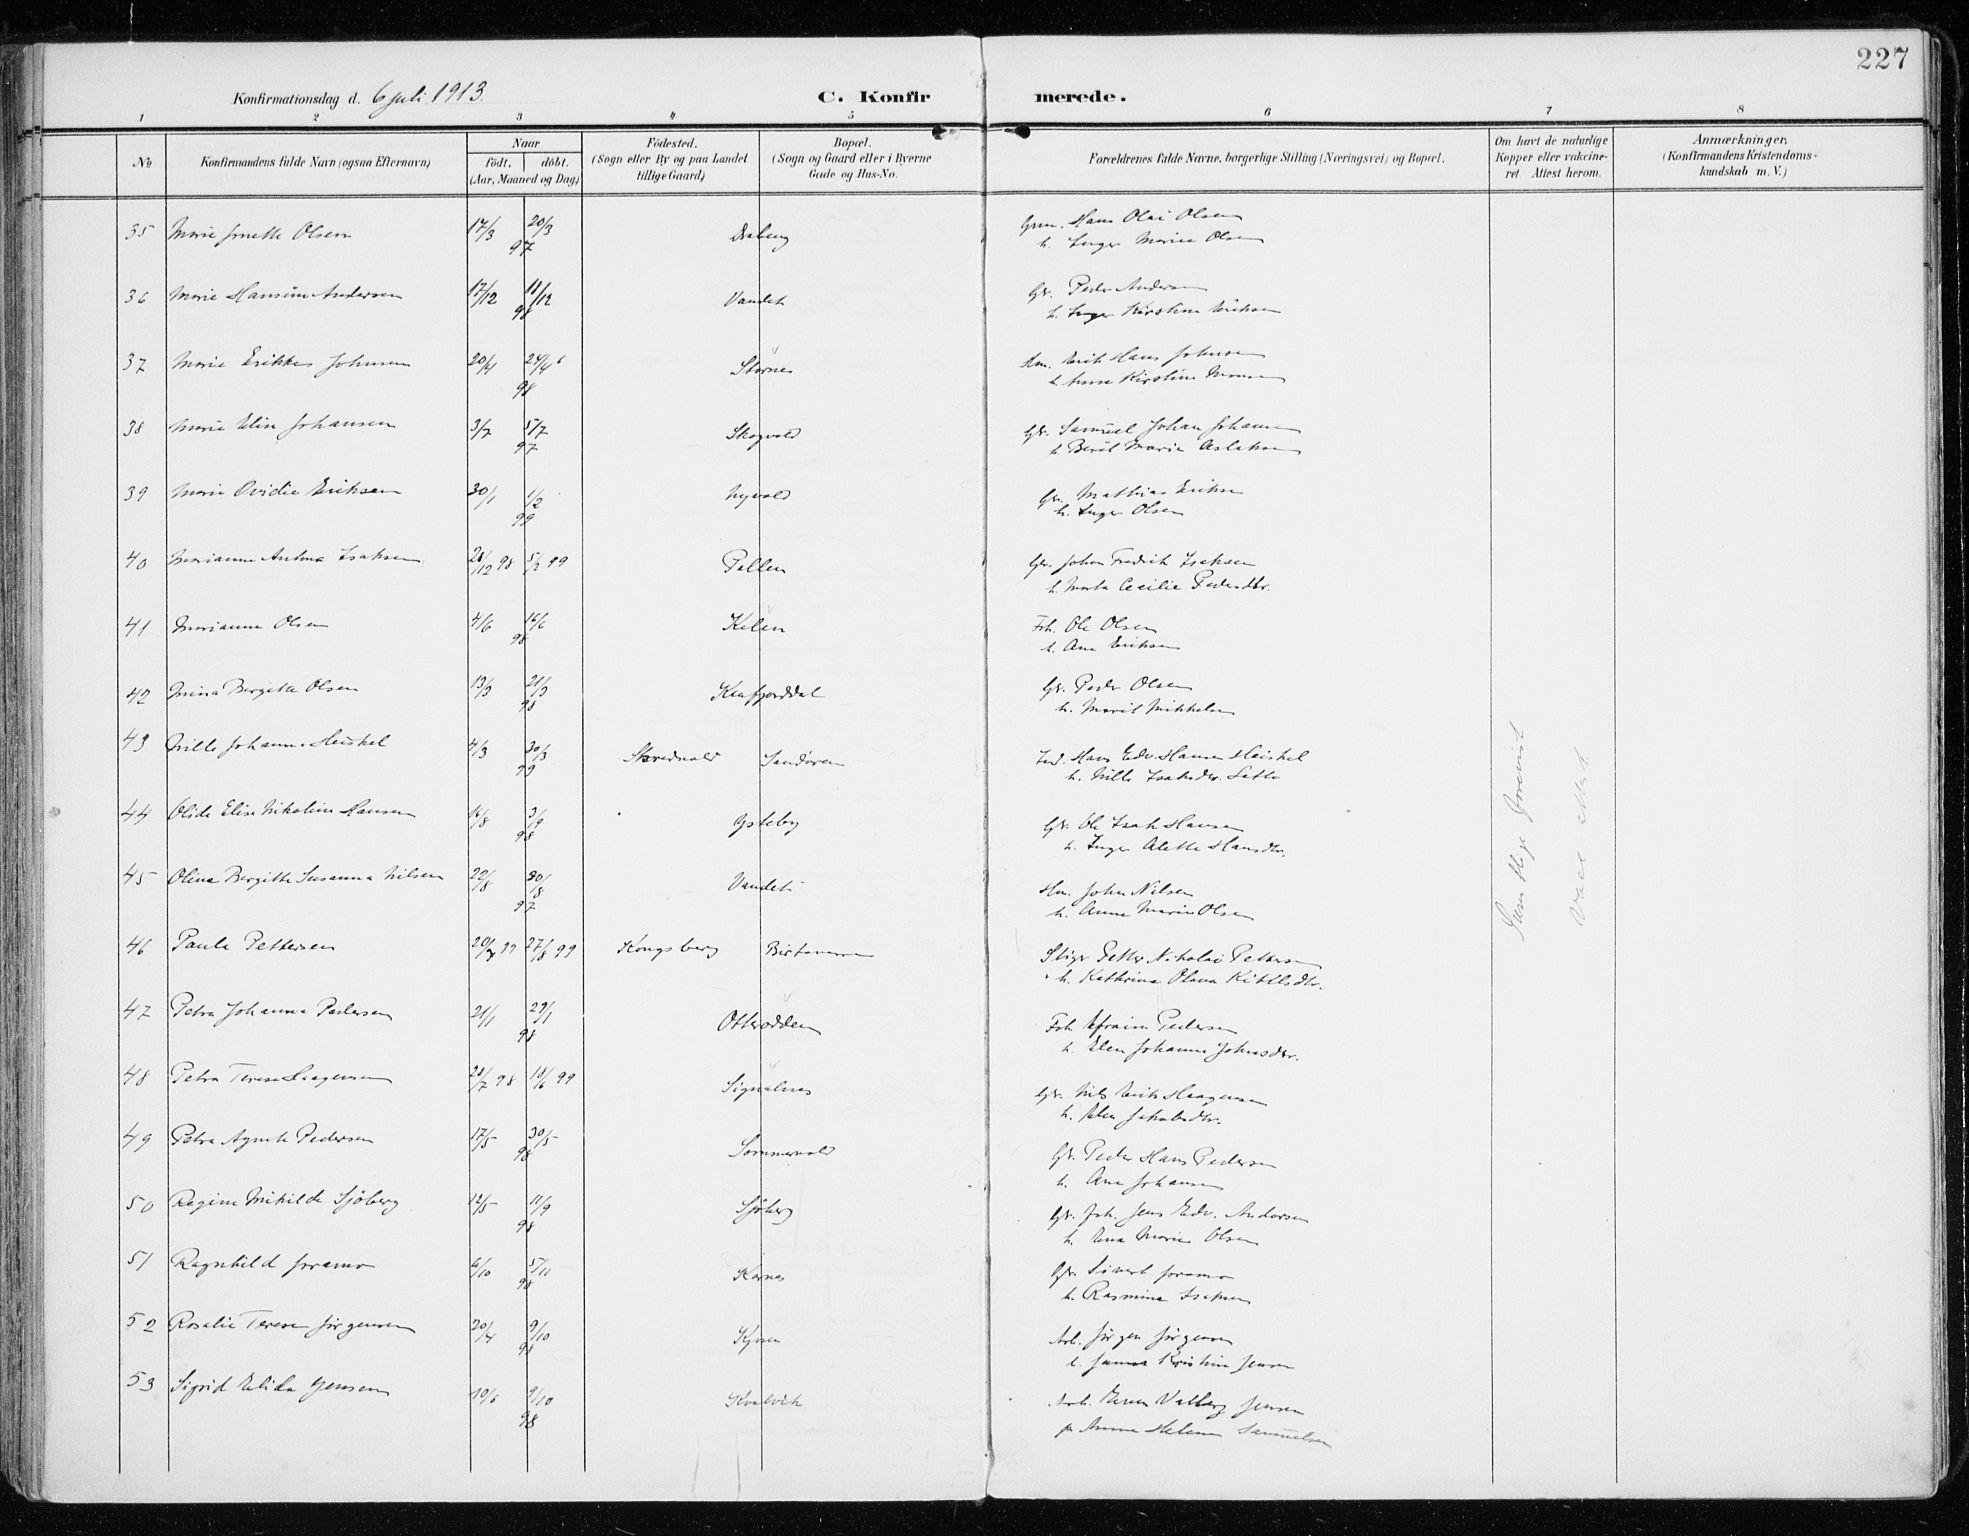 227
Konfirmationsdag d. 6 juli 1913. C. Konfir merede.
1 2 3 4 5 6 7 8
No Konfirmandens fulde Navn (ogsaa Efternavn) Naar født. døbt. (Aar, Maaned og Dag) Fødested. (Sogn eller By og paa Landet tillige Gaard) Bopæl. (Sogn og Gaard eller i Byerne Gade og Hus-No. Forældrenes fulde Navne, borgerlige Stilling (Næringsvei) og Bopæl. Om havt de naturlige Kopper eller vakcineret. Attest herom. Anmærkninger. (Konfirmandens Kristendomskundskab m. V.)
35 Marie Olsen 17/3 20/3 97 Gm. Hans Olai Olsen
h. Inger Marie Olsen
36 Marie Hansine Andersen 17/12 18/12 98 Vandet Gbr. Peder Andersen
h. Inger Kirstine Eriksen
37 Marie Erikke Johnsen 20/4 24/4 98 Stornes Erik Hans Johnsen
h. Anne Kirstine
38 Marie Elise Johansen 3/7 5/7 97 Skogvold Gbr. Samuel Johan Johansen
h. Berit Marie Aslaksen
39 Marie Ovidie Eriksen 30/1 1/2 99 Nyvold Gbr. Mathias Eriksen
h. Inger Olsen
40 Marianne Antona Isaksen 28/12 98 5/2 99 Pollen Gbr. Johan Fredrik Isaksen
h. Marta Cecilie Pedersdtr.
41 Marianne Olsen 4/6 16/6 98 Kilen Fsk. Ole Olsen
h. Ane Eriksen
42 Mina Bergitte Olsen 13/3 21/3 98 Kaafjorddal Gbr. Peder Olsen
h. Marit Mikkelsen
43 Nille Johanne Heiskel 4/3 30/3 99 Skredvold Sandøren Ind. Hans Edv. Hansen Heiskel
h. Nille Isaksdtr.
44 Olida Elise Nikoline Hansen 16/8 3/9 98 Ysteby Gbr. Ole Isak Hansen
h. Inger Alette Hansdtr.
45 Olina Bergitte Susanna Nilsen 22/8 30/8 97 Vandet Hm. John Nilsen
h. Anna Marie Olsen
46 Paula Pettersen 27/8 99 Kongsberg Birtavarre Stiger Petter Nikolai Pettersen
h. Kathrine Olava Kittilsdtr.
47 Petra Johanna Pedersen 21/1 29/1 98 Otterodden Fsk. Efraim Pedersen
h. Elen Johanne Johnsdtr.
48 Petra Terese Haagensen 28/7 98 18/6 99 Signalnes Gbr. Nils Erik Haagensen
h. Elen Jakobsdtr.
49 Petra Agnete Pedersen 17/5 30/5 98 Sommervold Gbr. Peder Hans Pedersen
h. Ane Johansen
50 Regine Mikilde Sjöberg 12/5 11/9 98 Sjöberg Gbr. Joh. Jens Edv. Andersen
h. Marie Olsen
51 Ragnhild Joramo 6/10 5/11 98 Kornes Gbr. Sivert Joramo
h. Rasmine Isaksen
52 Rosalie Terese Jørgensen 20/4 9/10 98 Arb. Jørgen Jørgensen
h. Kristine Jensen
53 Sigrid Elida Jensen 10/6 9/10 98 Kvalvik Arb. Valberg Jensen
Anna Helene Samuelsen
Samtlige forevist
Vacc. attest.